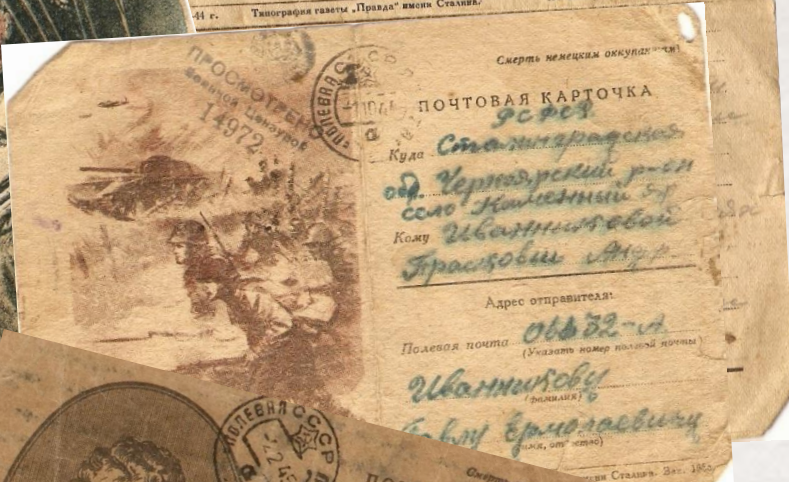 44 г. Типография газеты „Правда“ имени Сталина.
Смерть немецким оккупантам!
ПРОСМОТРЕНО
Военной Цензурой
14972
ПОЛЕВАЯ СССР
ПОЧТОВАЯ КАРТОЧКА
РСФСР
Куда Сталинградская
обл. Черноярский р-он
село Каменный Яр
Кому Иванниковой
Прасковьи Андр
Адрес отправителя:
Полевая почта 32-А
(Указать номер полевой почты)
Иванникову
(фамилия)
Павлу Ермолаевичу
(имя, отчество)
ПОЛЕВАЯ СССР
Смерть
имени Сталина. Зак.